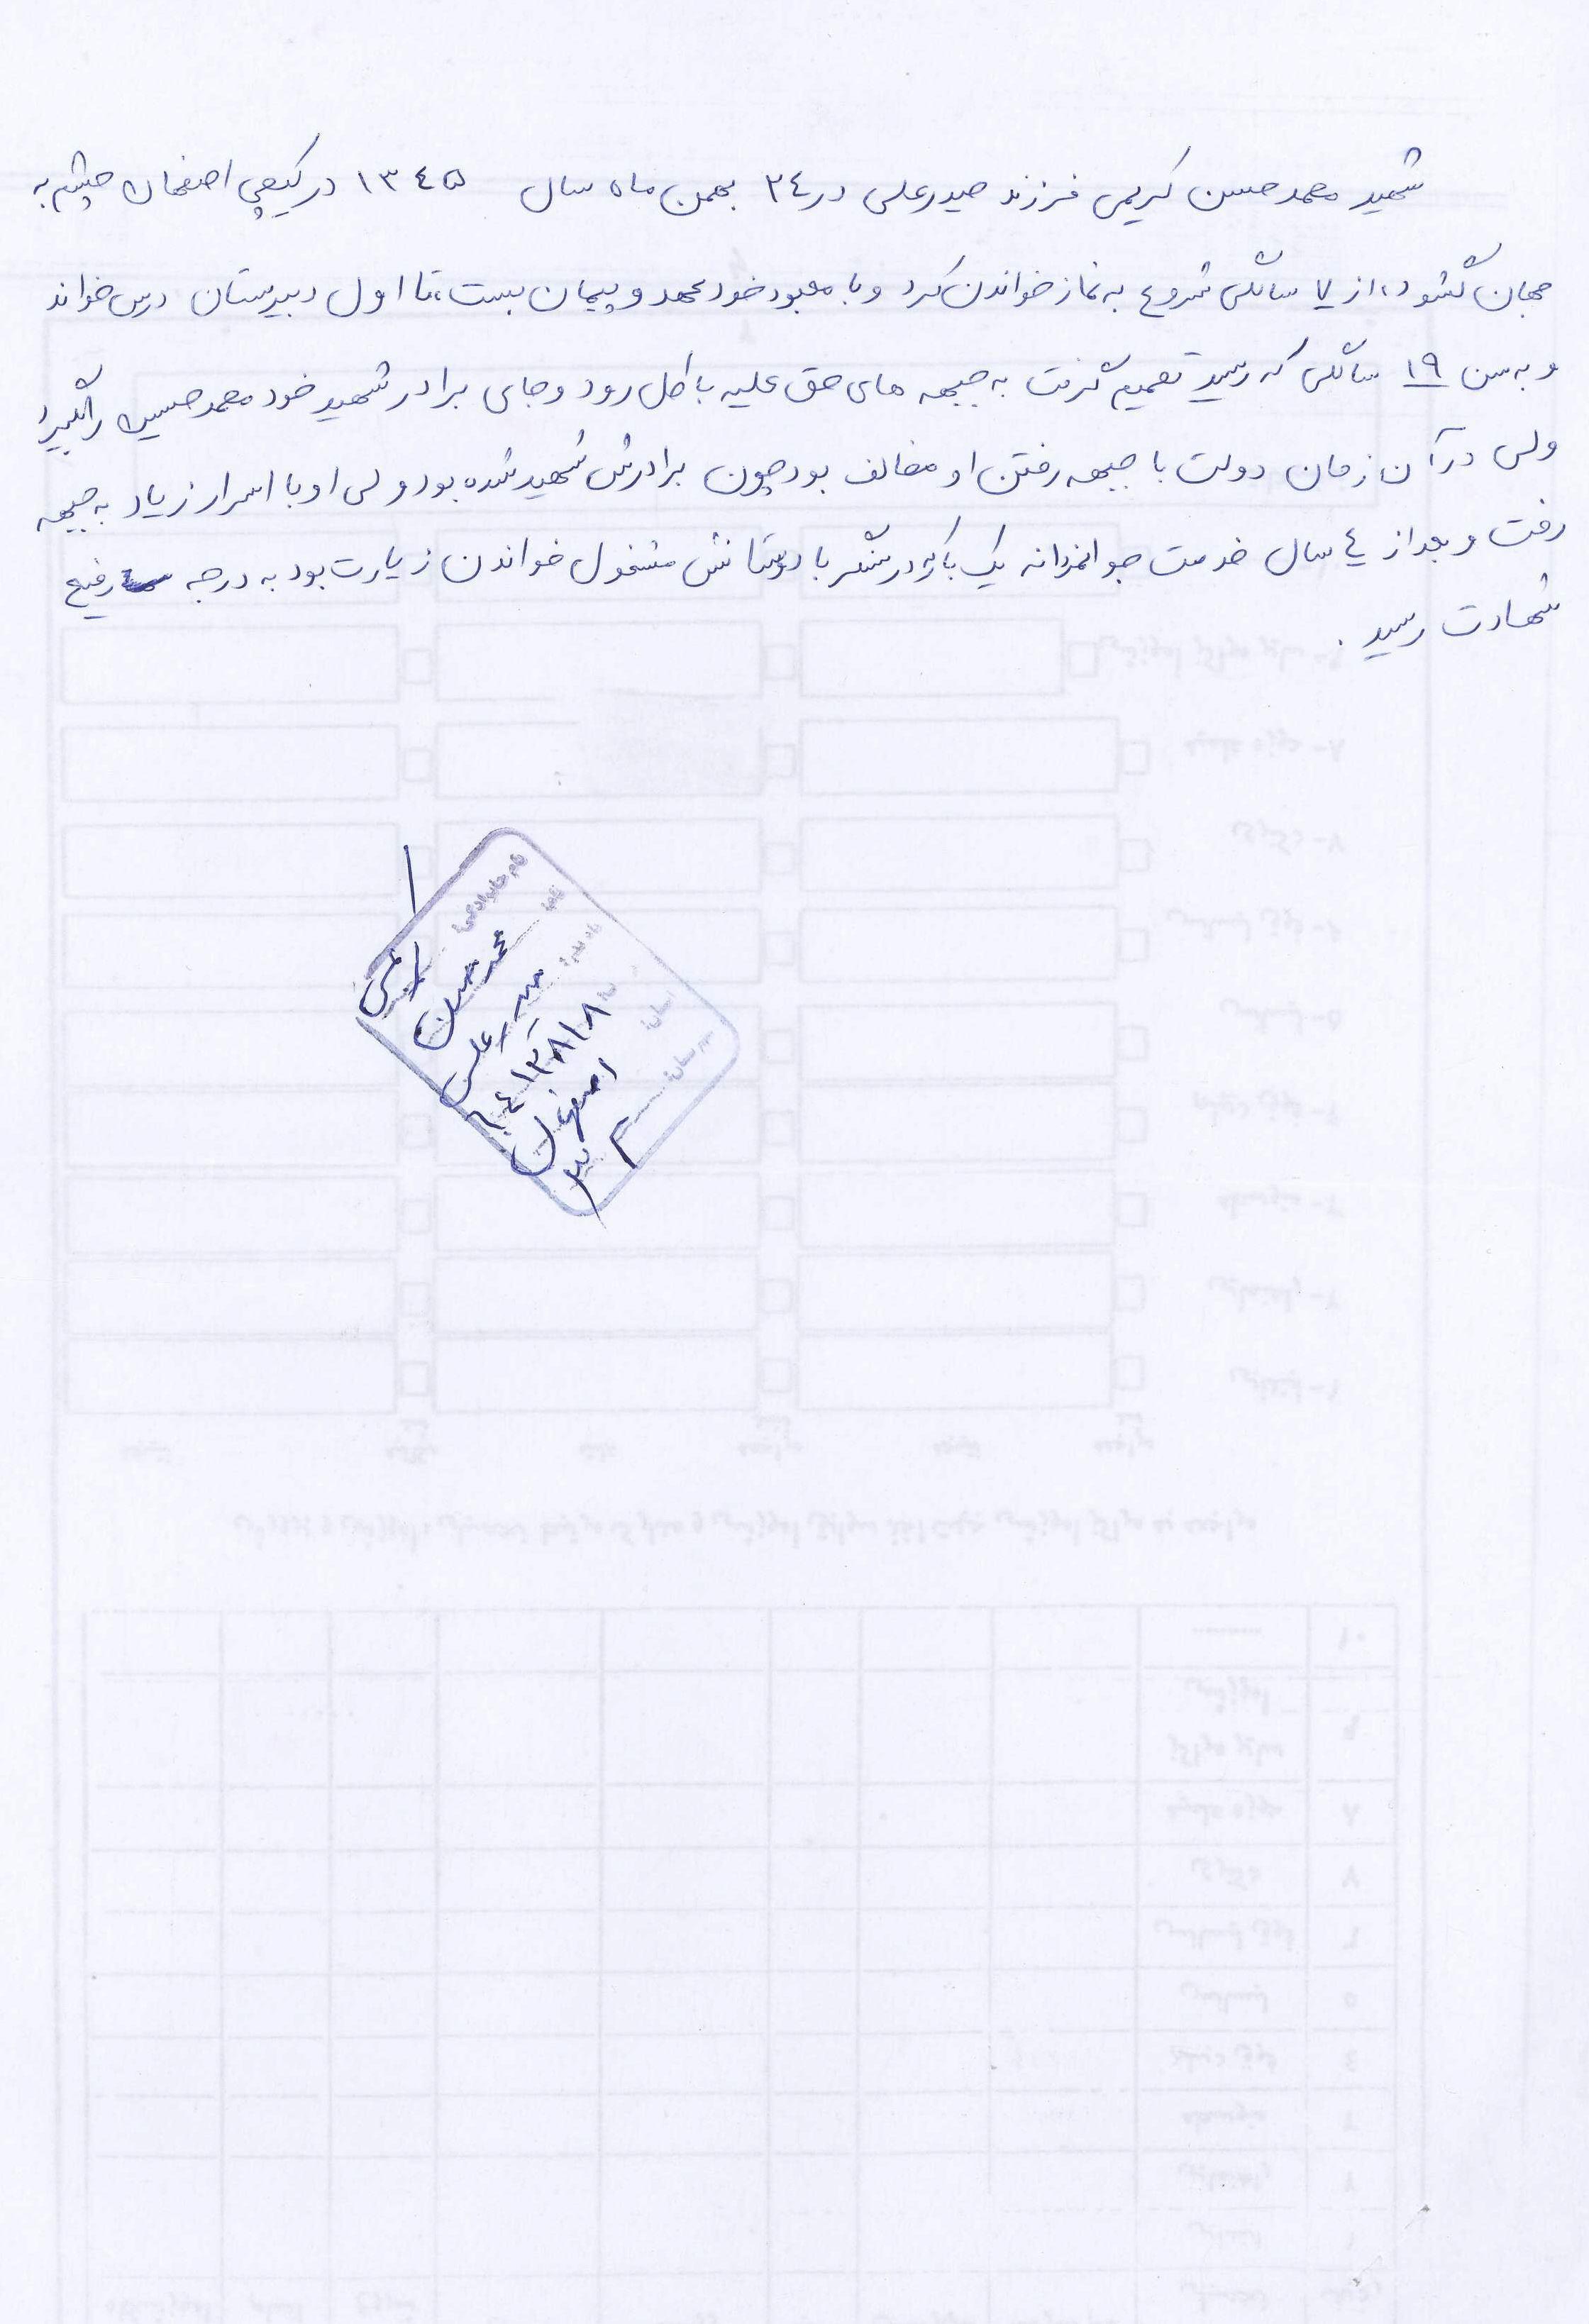 شهید محمدحسن کریمی فرزند حیدرعلی در ۲٤ بهمن ماه سال ۱۳٤۵ در کیچی اصفهان چشم به
جهان گشود، از ۷ سالگی شروع به نماز خواندن کرد و با معبود خود عهد و پیمان بست، تا اول دبیرستان درس خواند
و به سن ۱۹ سالگی که رسید تصمیم گرفت به جبهه های حق علیه باطل رود و جای برادر شهید خود محمدحسین را بگیرد
ولی در آن زمان دولت با جبهه رفتن او مخالف بود چون برادرش شهید شده بود ولی او با اسرار زیاد به جبهه
رفت و بعد از ٤ سال خدمت جوانمردانه در سنگر با دوستانش مشغول خواندن زیارت بود به درجه رفیع
شهادت رسید .
نام خانوادگی:
نام: محمدحسن
نام پدر: حیدرعلی
کد: ۱۳۸۱۸
استان: اصفهان
شهرستان: